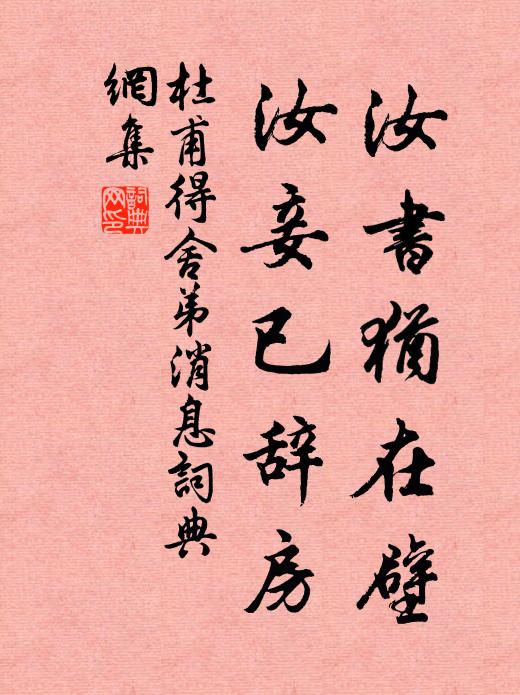 汝書猶在壁
汝妾已辞房
杜甫得舍弟消息詞典
網集
詞典
网印